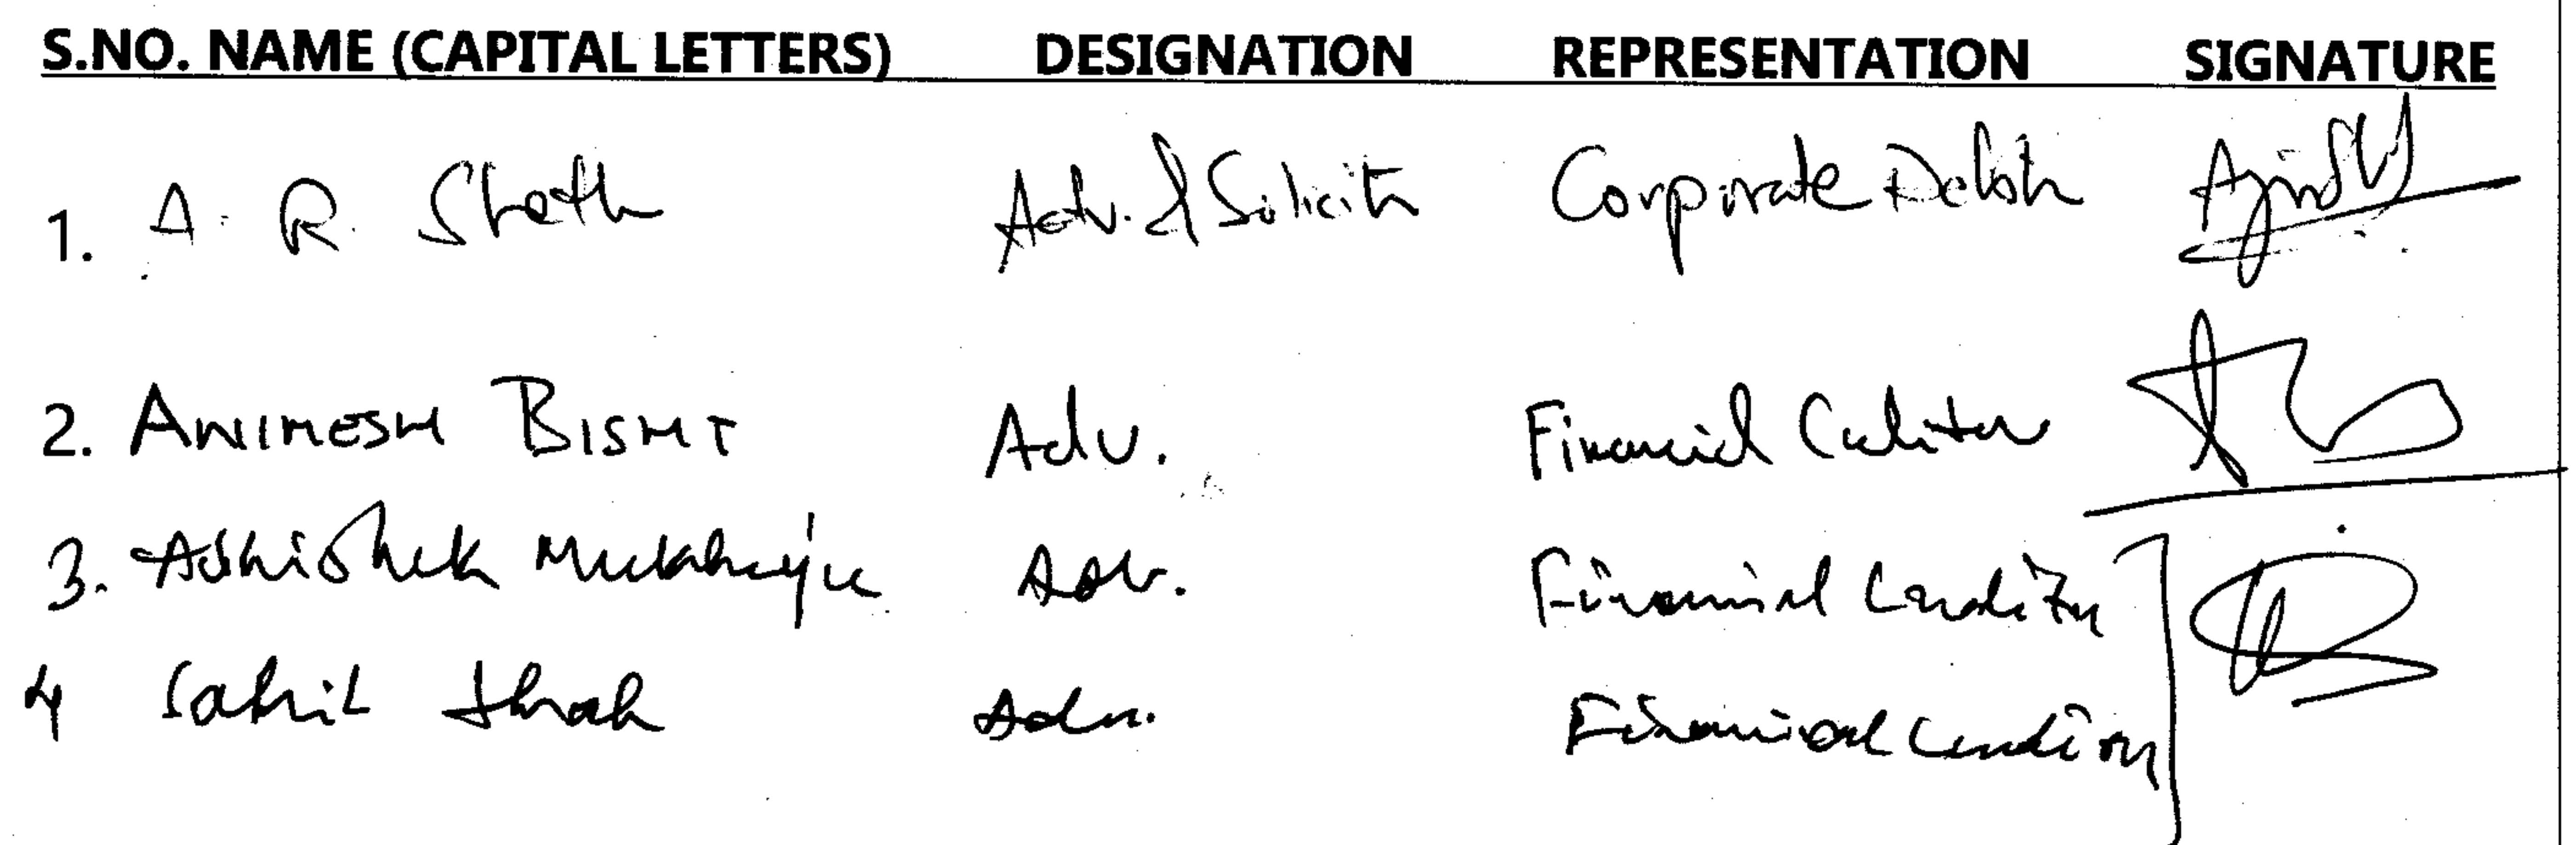 S.NO. NAME (CAPITAL LETTERS) DESIGNATION REPRESENTATION SIGNATURE
1. A. R. Sheth Adv. & Solicitr Corporate Debtor
2. ANIMESH BISHT Adv. Financial Creditor
3. Abhishek Mukherjee Adv. Financial Creditor
4 Sahil Shah Adv. Financial Creditor